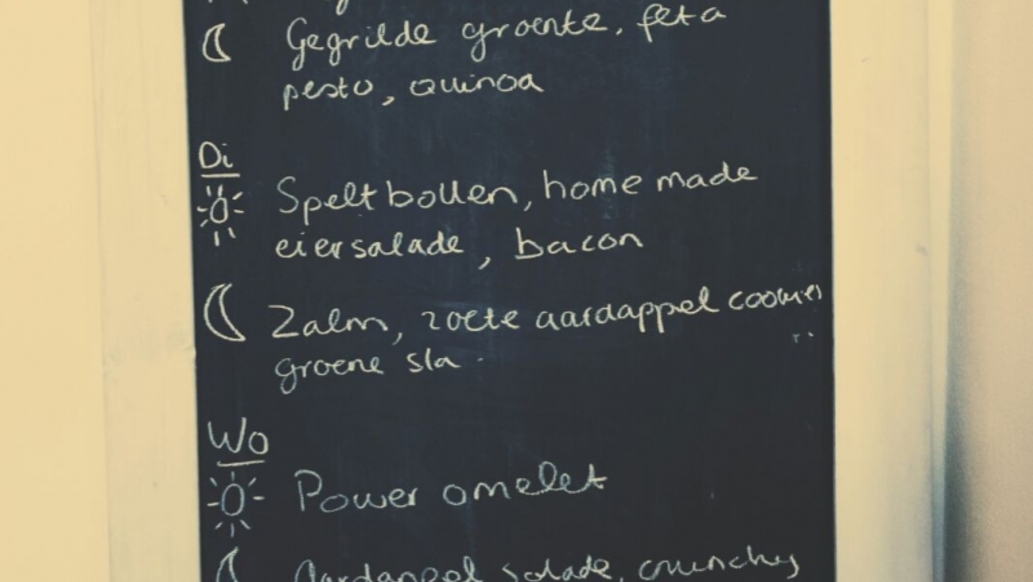 Gegrilde groente, feta
pesto, quinoa
Di
Speltbollen, home made
eiersalade, bacon
Zalm, zoete aardappel cookies
groene sla
Wo
Power omelet
Aardappel salade, crunchy